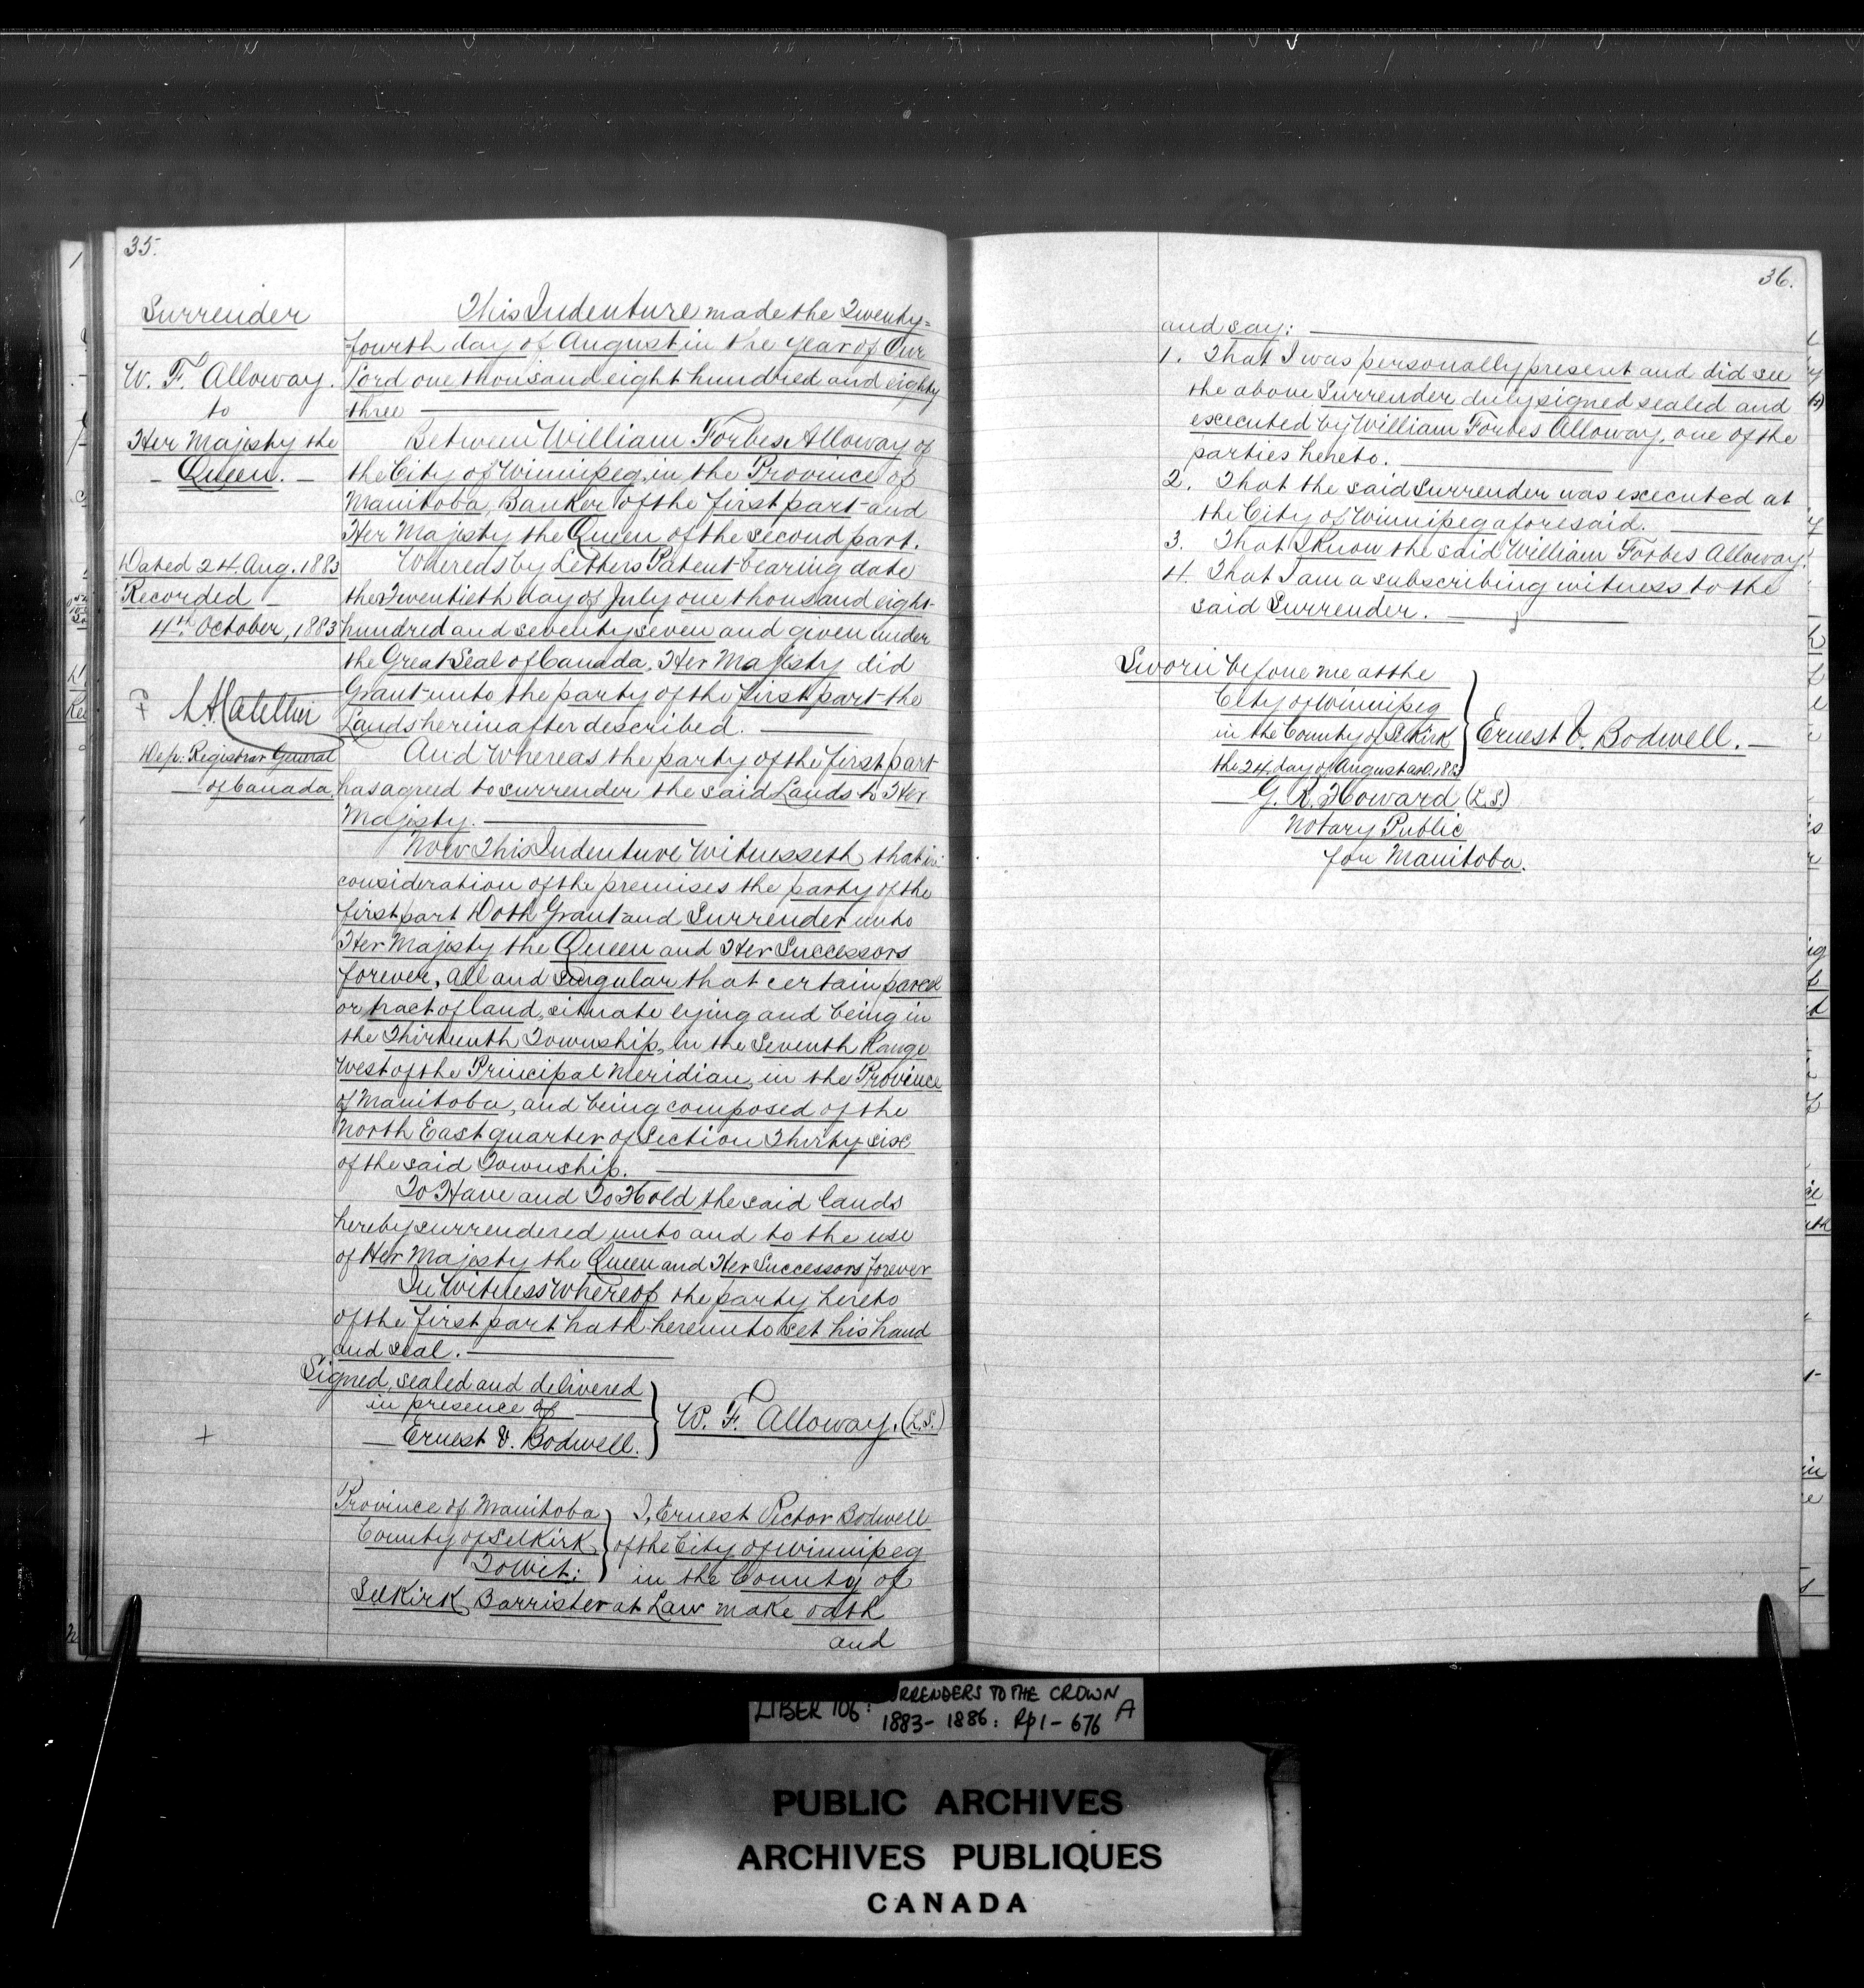 35.
Surrender
W. F. Alloway.
to
Her Majesty the
- Queen. -
Dated 24. Aug. 1883
Recorded -
4th. October, 1883
Dep: Registrar General
of Canada.
This Indenture made the Twenty-
fourth day of August in the year of Our
Lord one thousand eight hundred and eighty
three
Between William Forbes Alloway of
the City of Winnipeg, in the Province of
Manitoba, Banker of the first part and
Her Majesty the Queen of the second part.
Whereas by Letters Patent bearing date
the Twentieth day of July one thousand eight
hundred and seventy seven and given under
the Great Seal of Canada, Her Majesty did
Grant unto the party of the first part the
Lands hereinafter described.
And Whereas the party of the first part
has agreed to surrender the said Lands to Her
Majesty.
Now This Indenture Witnesseth that in
consideration of the premises the party of the
first part Doth Grant and Surrender unto
Her Majesty the Queen and Her Successors
forever, all and singular that certain parcel
or tract of land, situate lying and being in
the Thirteenth Township, in the Seventh Range
West of the Principal Meridian, in the Province
of Manitoba, and being composed of the
North East quarter of Section Thirty-six
of the said Township.
To Have and To Hold the said lands
hereby surrendered unto and to the use
of Her Majesty the Queen and Her Successors forever
In Witness Whereof the party hereto
of the first part hath hereunto set his hand
and seal.
Signed, sealed and delivered
in presence of
Ernest V. Bodwell.
W. F. Alloway. (L.S.)
Province of Manitoba
County of Selkirk
To Wit:
I, Ernest Victor Bodwell
of the City of Winnipeg
in the County of
Selkirk, Barrister at Law make oath
and
36.
and say:
1. That I was personally present and did see
the above Surrender duly signed sealed and
executed by William Forbes Alloway, one of the
parties hereto.
2. That the said Surrender was executed at
the City of Winnipeg aforesaid.
3. That I Know the said William Forbes Alloway.
4. That I am a subscribing witness to the
said Surrender.
Sworn before me at the
City of Winnipeg
in the County of Selkirk
the 24. day of August A.D. 1883
Ernest V. Bodwell. -
G. R. Howard (L.S.)
Notary Public
for Manitoba.
LIBER 106: RRENDERS TO THE CROWN
1883-1886: Rp 1-676 A
PUBLIC ARCHIVES
ARCHIVES PUBLIQUES
CANADA